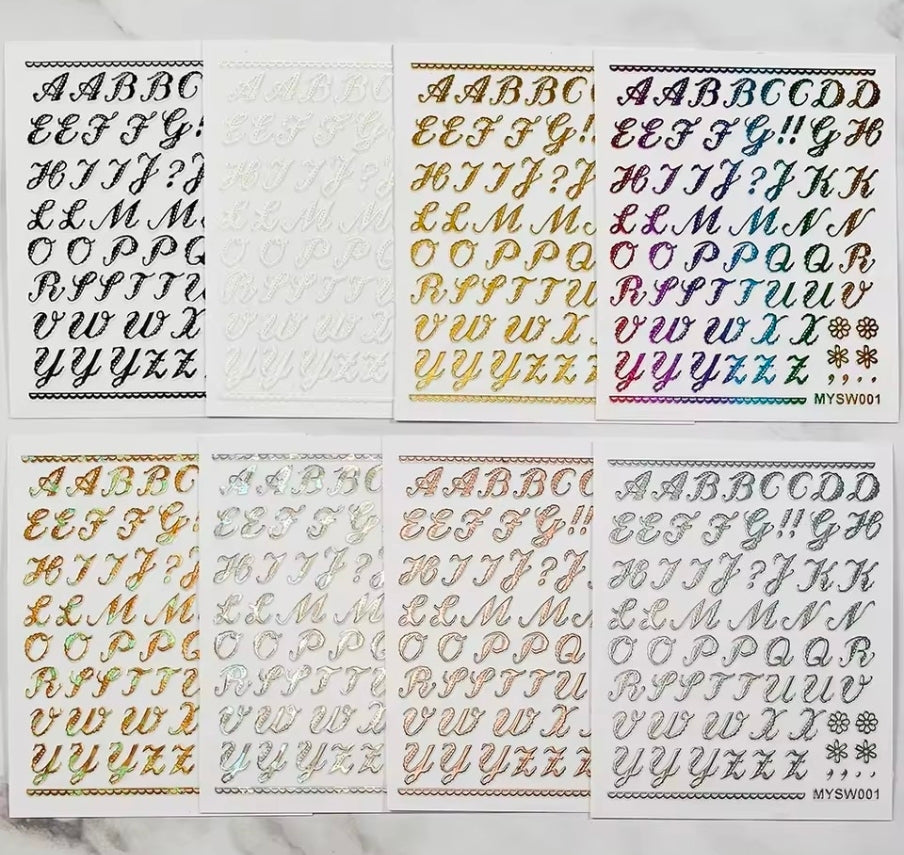 A A B B C
E E F F G !
H I I J ? J
L L M M
O O P P Q
R S S T T U
V W W X
Y Y Y Z Z
A A B B C
E E F F G
H I I J ? J
L L M M
O O P P Q
R S S T T U
V W W X
Y Y Y Z Z
A A B B C
E E F F G !!
H I I J ? J
L L M M
O O P P Q
R S S T T U
V W W X
Y Y Y Z Z Z
A A B B C C D D
E E F F G !! G H
H I I J ? J K K
L L M M N N
O O P P Q Q R
R S S T T U U V
V W W X X
Y Y Y Z Z Z , , . .
MYSW001
A A B B C
E E F F G !
H I I J ?
L L M M
O O P P Q
R S S T T U
V W W X
Y Y Y Z Z
A A B B C
E E F F G
H I I J ?
L L M M
O O P P Q
R S S T T U
V W W X
Y Y Y Z Z
A A B B C
E E F F G !!
H I I J ? J
L L M M
O O P P Q
R S S T T U
V W W X
Y Y Y Z Z Z
A A B B C C D D
E E F F G !! G H
H I I J ? J K K
L L M M N N
O O P P Q Q R
R S S T T U U V
V W W X X
Y Y Y Z Z Z , , . .
MYSW001